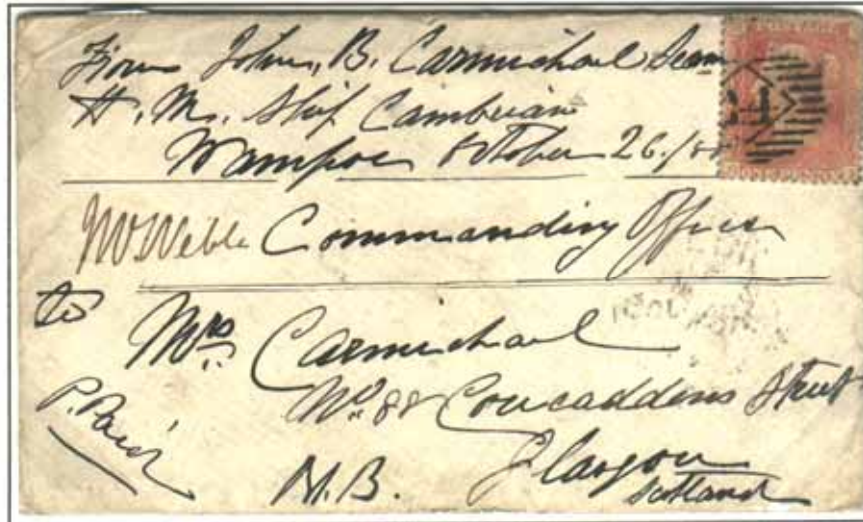 From John, B. Carmichael Seam
H. M. Ship Cambrian
Wampoe October 26/
Commanding Officer
to
Mrs. Carmichael
No. 88 Coucaddens Street
P. Paid
Glasgow
N.B.
Scotland